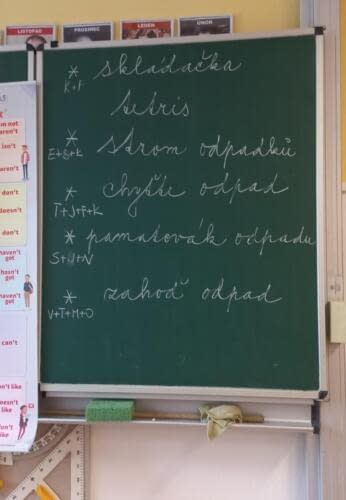 LISTOPAD PROSINEC LEDEN ÚNOR
* skládačka
K+F
tetris
* strom odpadků
E+S+K
* chyťte odpad
T+J+F+K
* pamatovák odpadu
S+J+N
* zahoď odpad
V+T+M+O
am not
aren't
isn't
aren't
don't
doesn't
don't
haven't got
hasn't got
haven't got
can't
don't like
doesn't like
don't like